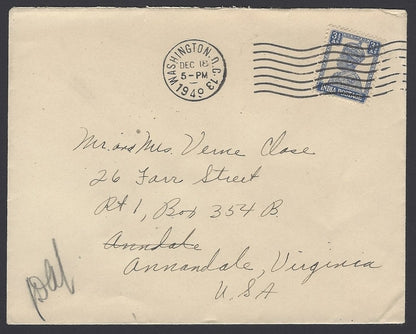 WASHINGTON, D.C. 13
DEC 18
5-PM
1949
INDIA POSTAGE
Mr. and Mrs. Verne Close
26 Farr Street
Rt 1, Box 354 B.
Anndale
Annandale, Virginia
U.S.A